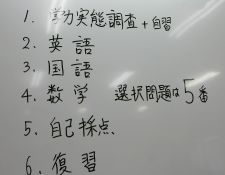 1. 学力実態調査+自習
2. 英語
3. 国語
4. 数学 選択問題は5番
5. 自己採点
6. 復習